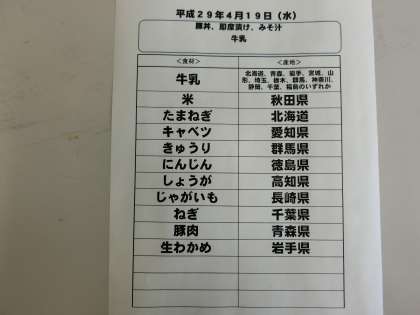 平成29年4月19日(水)
豚丼、即席漬け、みそ汁
牛乳
<食材> <産地>
牛乳 北海道、青森、岩手、宮城、山
形、埼玉、栃木、群馬、神奈川、
静岡、千葉、福島のいずれか
米 秋田県
たまねぎ 北海道
キャベツ 愛知県
きゅうり 群馬県
にんじん 徳島県
しょうが 高知県
じゃがいも 長崎県
ねぎ 千葉県
豚肉 青森県
生わかめ 岩手県